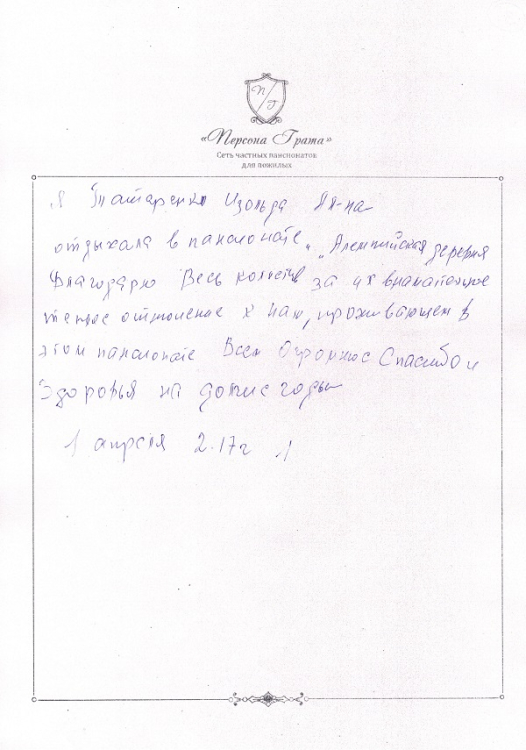 П
Г
«Персона Грата»
Сеть частных пансионатов
для пожилых
Я Татаренко Изольда
отдыхала в пансионате „Альпийская деревня
Благодарю Весь за их внимательное
теплое отношение к нам, проживающем в
этом пансионате Всем Огромное Спасибо и
Здоровья на долгие годы
1 апреля 2.17г